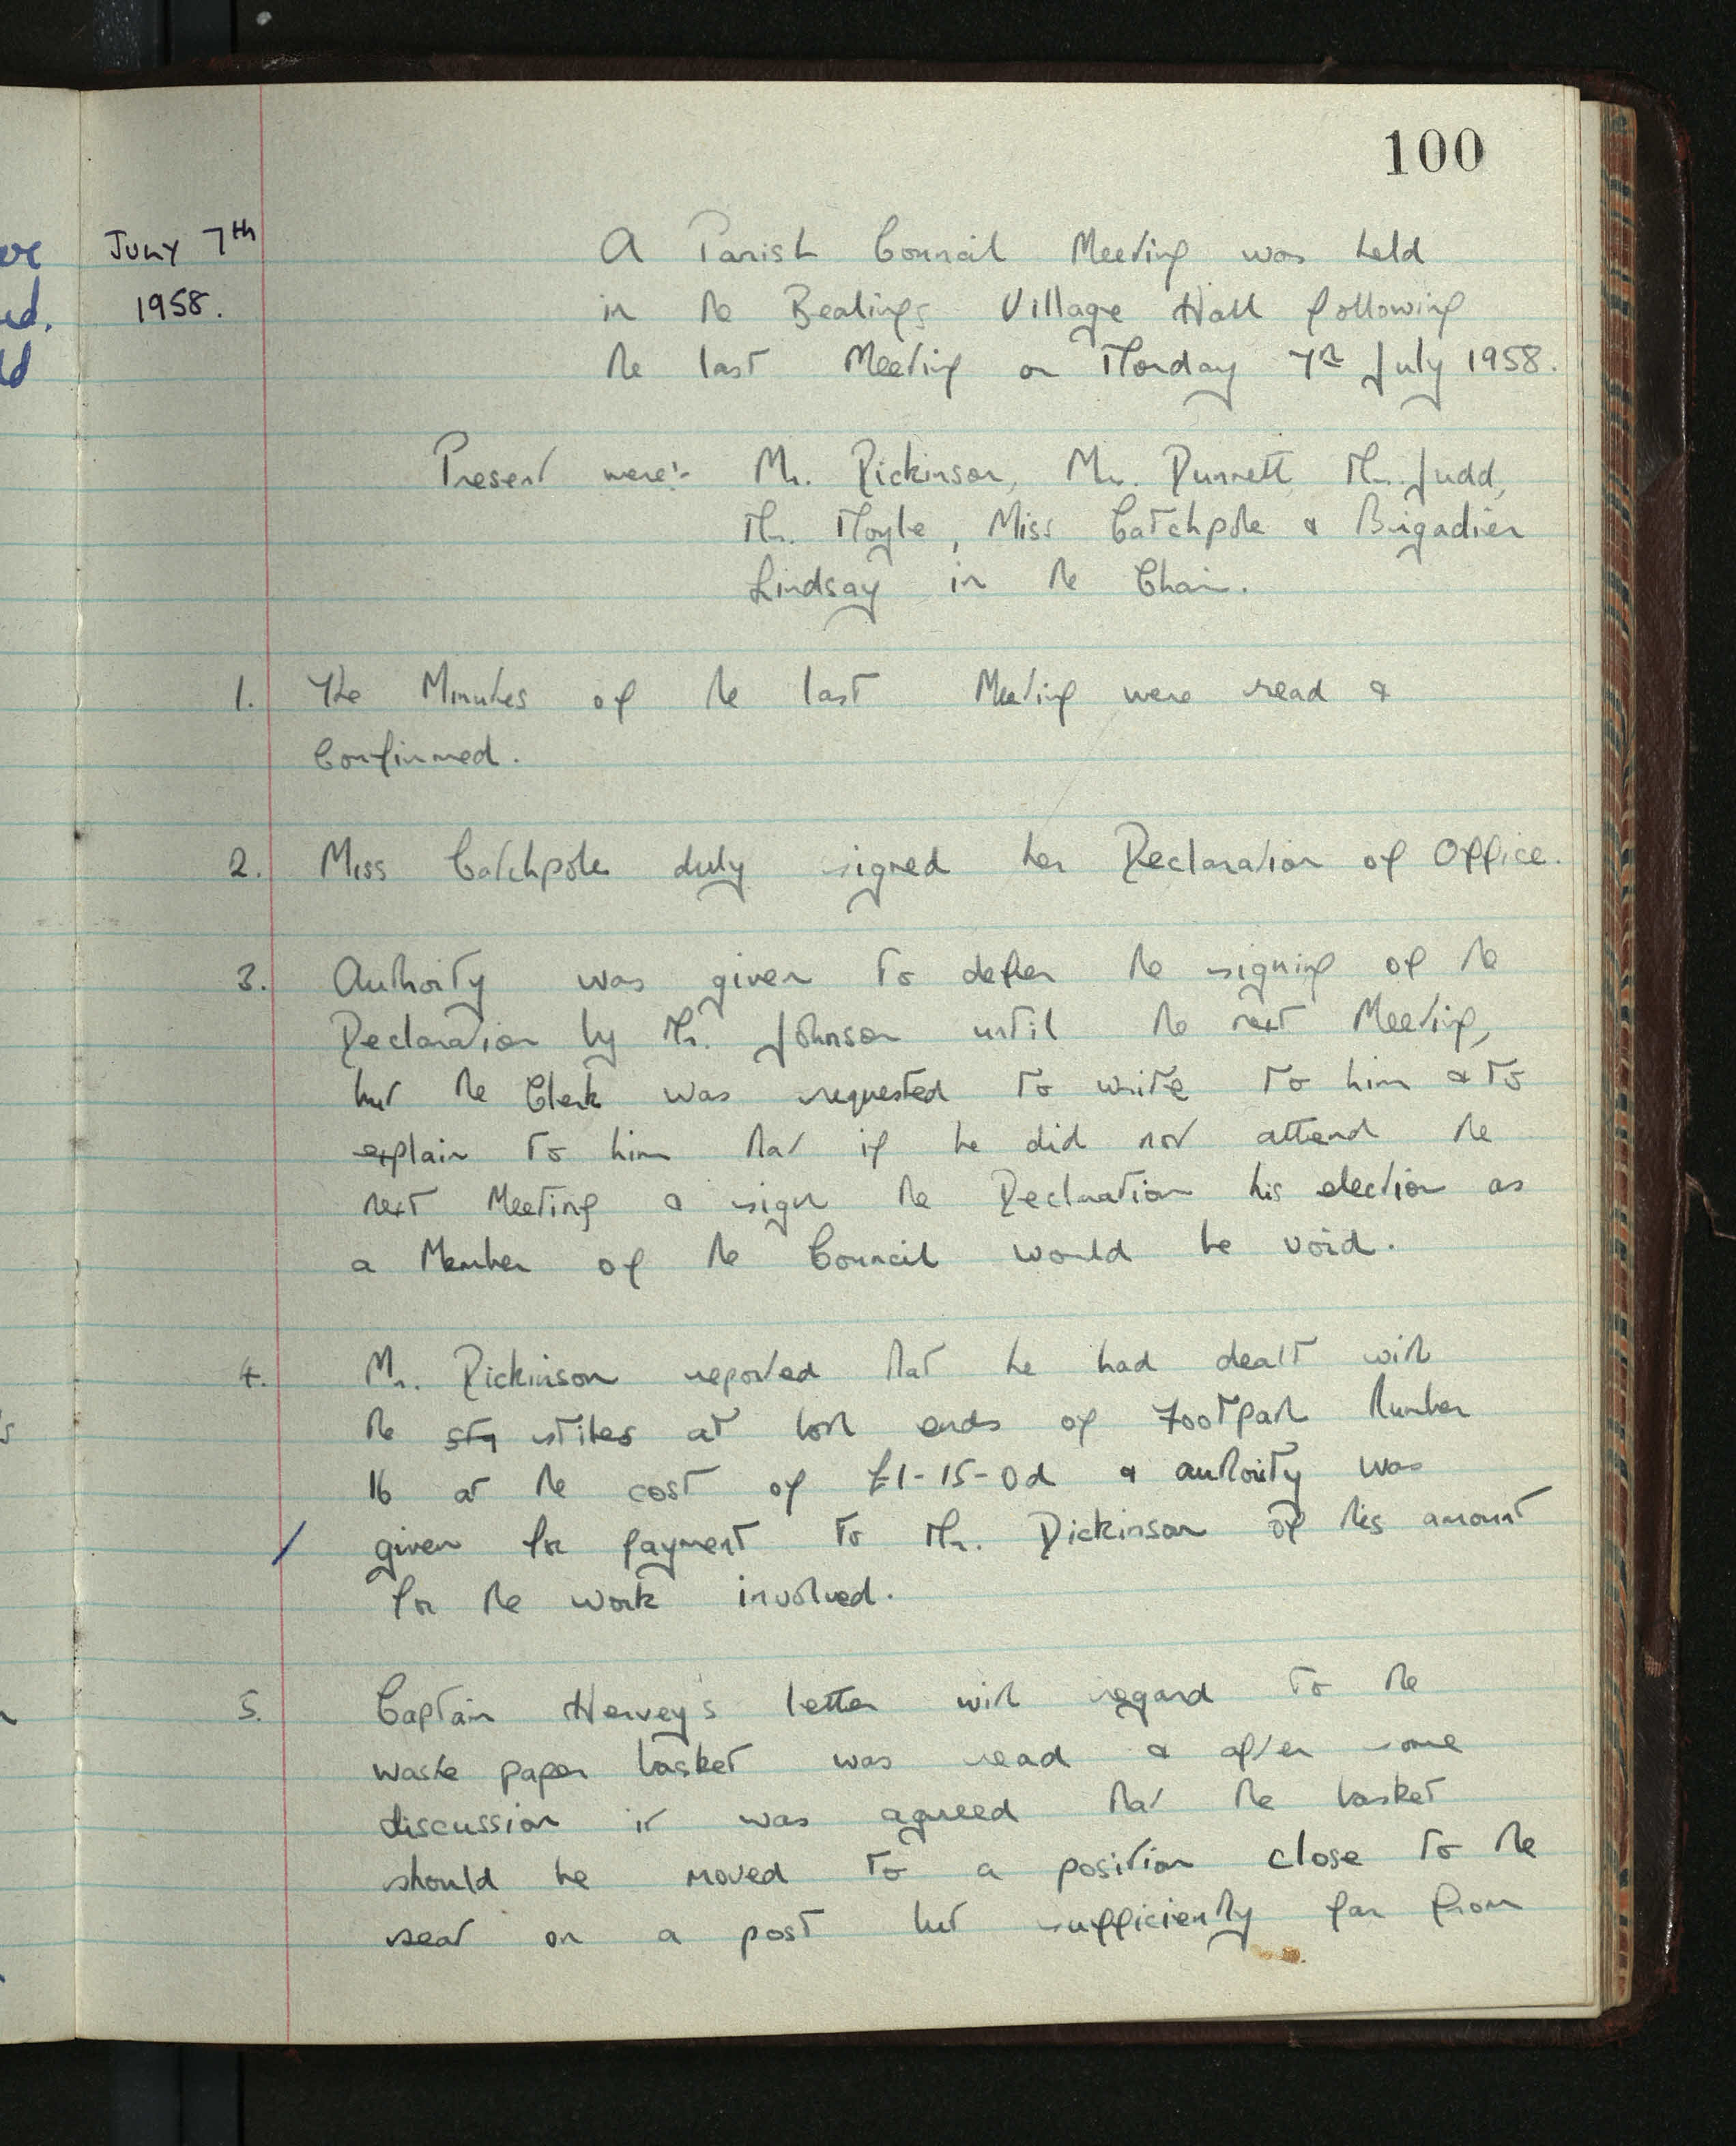 100
July 7th
1958.
A Parish Council Meeting was held
in the Bealings Village Hall following
the last Meeting on Monday 7th July 1958.
Present were:- Mr. Dickinson, Mr. Dunnett, Mr. Judd,
Mr. Moyle, Miss Catchpole & Brigadier
Lindsay in the Chair.
1. The Minutes of the last Meeting were read &
Confirmed.
2. Miss Catchpole duly signed her Declaration of Office.
3. Authority was given to defer the signing of the
Declaration by Mr. Johnson until the next Meeting,
but the Clerk was requested to write to him & to
explain to him that if he did not attend the
next Meeting & sign the Declaration his election as
a Member of the Council would be void.
4. Mr. Dickinson reported that he had dealt with
the sty stiles at both ends of Footpath Number
16 at the cost of £1-15-0d & authority was
given for payment to Mr. Dickinson of this amount
for the work involved.
5. Captain Hervey's letter with regard to the
waste paper basket was read & after some
discussion it was agreed that the basket
should be moved to a position close to the
seat on a post but sufficiently far from